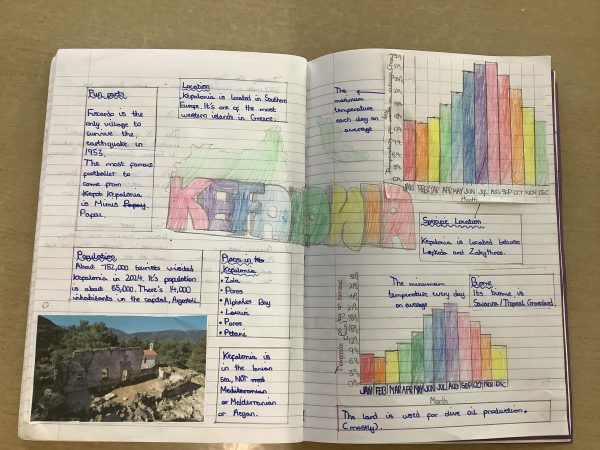 Fun facts
Fiscardo is the
only village to
survive the
earthquake in
1953.
The most famous
footballer to
come from
Kepalonia
is Minus
Papau.
Location
Kepalonia is located in Southern
Europe. It's one of the most
western islands in Greece.
KEFALONIA
Population
About 752,000 tourists visited
Kepalonia in 2024. It's population
is about 65,000. There's 14,000
inhabitants in the capital, Argostoli.
Places in the
Kepalonia
• Zola
• Poros
• Alphates Bay
• Lassi
• Poros
• Petani
Kepalonia is
in the Ionian
sea, NOT
Mediteranian
or Mediterranian
or Aegan.
The
maximum
temperature
each day on
average
JAN FEB MAR APR MAY JUN JUL AUG SEP OCT NOV DEC
Month
Specific Location
Kepalonia is located between
Lefkada and Zakythnos.
The minimum
temperature every day
on average
Biome
It's biome is
Savanna/Tropical Grassland.
JAN FEB MAR APR MAY JUN JUL AUG SEP OCT NOV DEC
Month
The land is used for olive oil production.
(mostly).